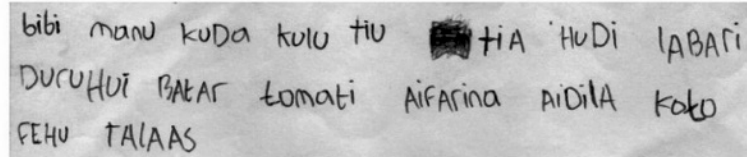 bibi manu KUDA kulu tiu tiA HUDi lABAri
DUruHUi BAkAr tomati AiFArina AiDilA Koto
FEHU TAlAAS